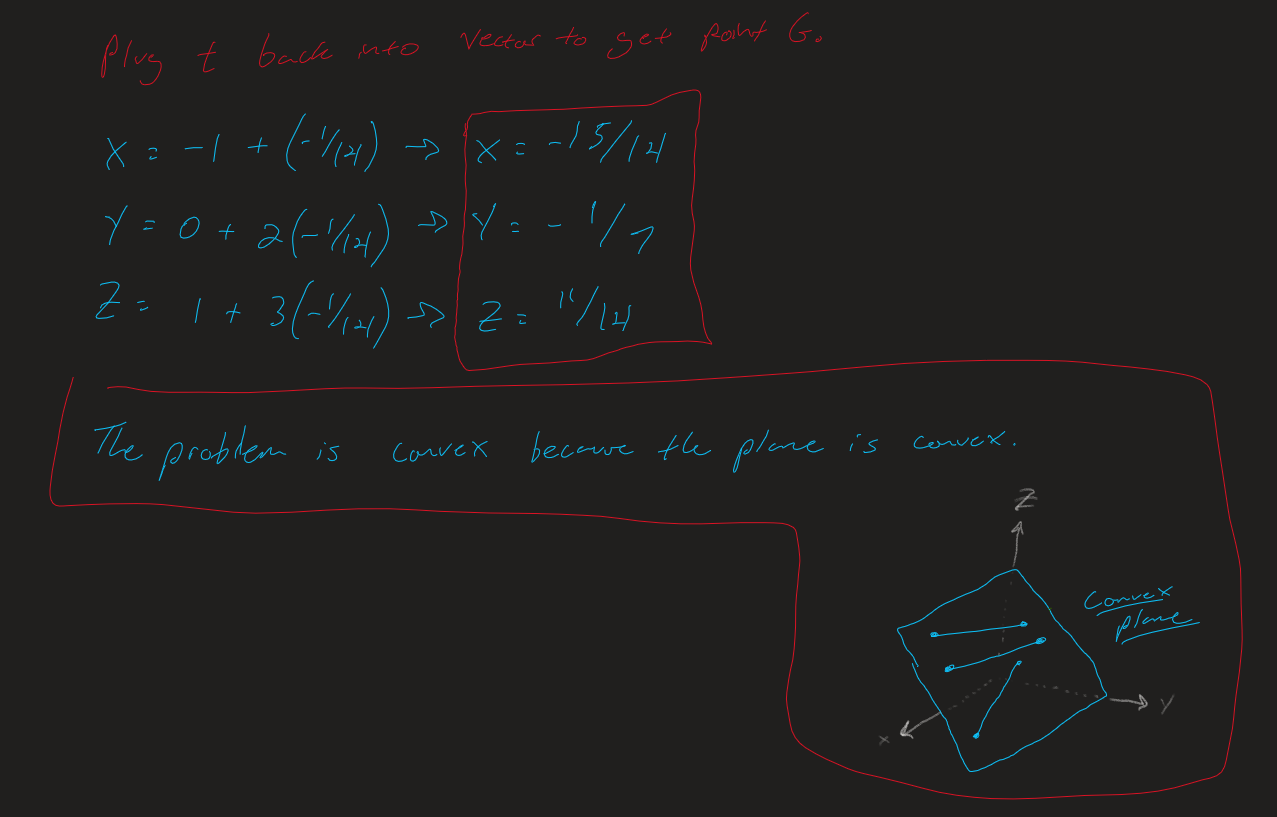 Plug t back into vector to get point G.
X = -1 + (-1/14) → X = -15/14
Y = 0 + 2(-1/14) → Y = -1/7
Z = 1 + 3(-1/14) → Z = 11/14
The problem is convex because the plane is convex.
Z
Convex
plane
Y
X